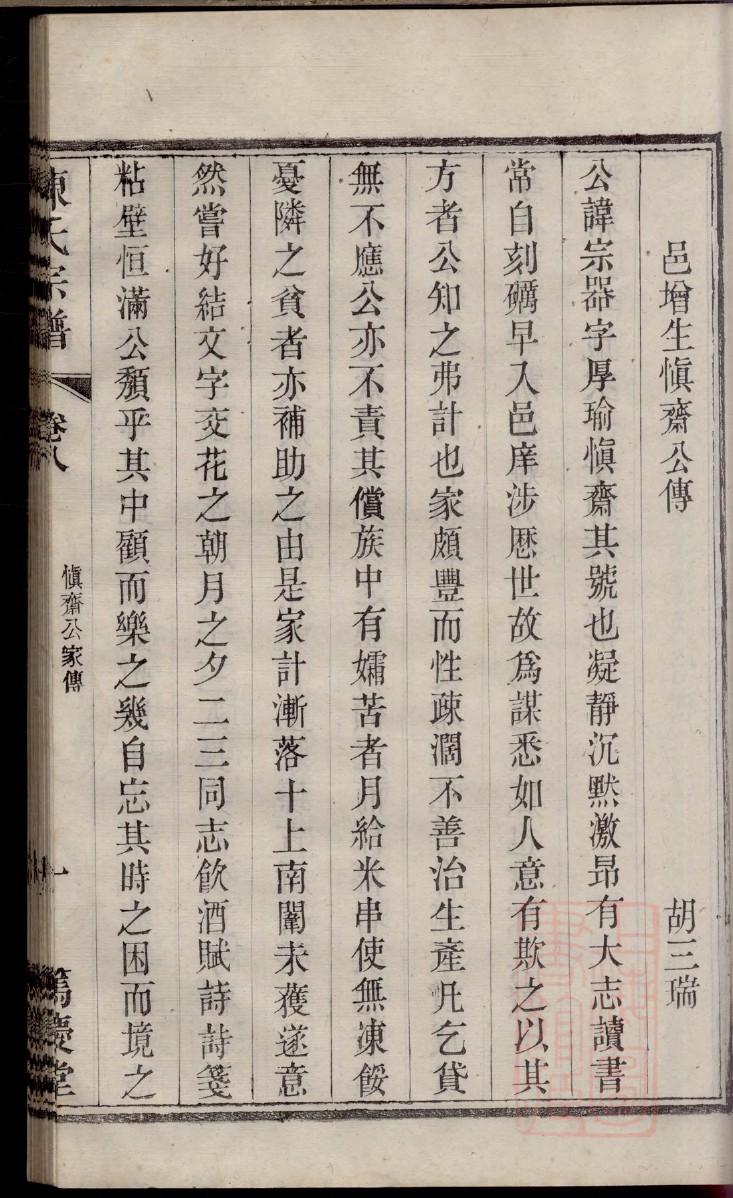 邑增生愼齋公傳
胡三瑞
公諱宗器字厚瑜愼齋其號也凝靜沉黙激昂有大志讀書
常自刻礪早入邑庠涉厯世故爲謀悉如人意有欺之以其
方者公知之弗計也家頗豐而性疎濶不善治生產凡乞貸
無不應公亦不責其償族中有孀苦者月給米串使無凍餒
憂隣之貧者亦補助之由是家計漸落十上南闈未獲遂意
然嘗好結文字交花之朝月之夕二三同志飲酒賦詩詩箋
粘壁恒滿公頹乎其中顧而樂之幾自忘其時之困而境之
陳氏宗譜
卷八
愼齋公家傳
篤慶堂